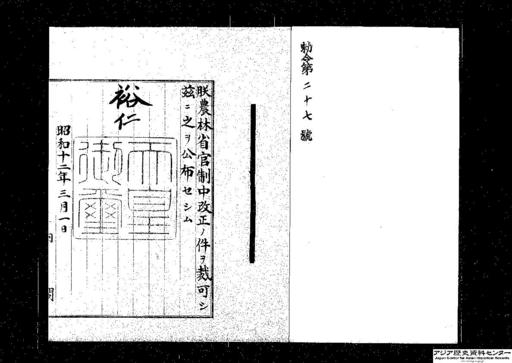 勅令第二十七號
朕農林省官制中改正ノ件ヲ裁可シ
茲ニ之ヲ公布セシム
裕仁
天皇
御璽
昭和十二年三月一日
内閣
アジア歴史資料センター
Japan Center for Asian Historical Records